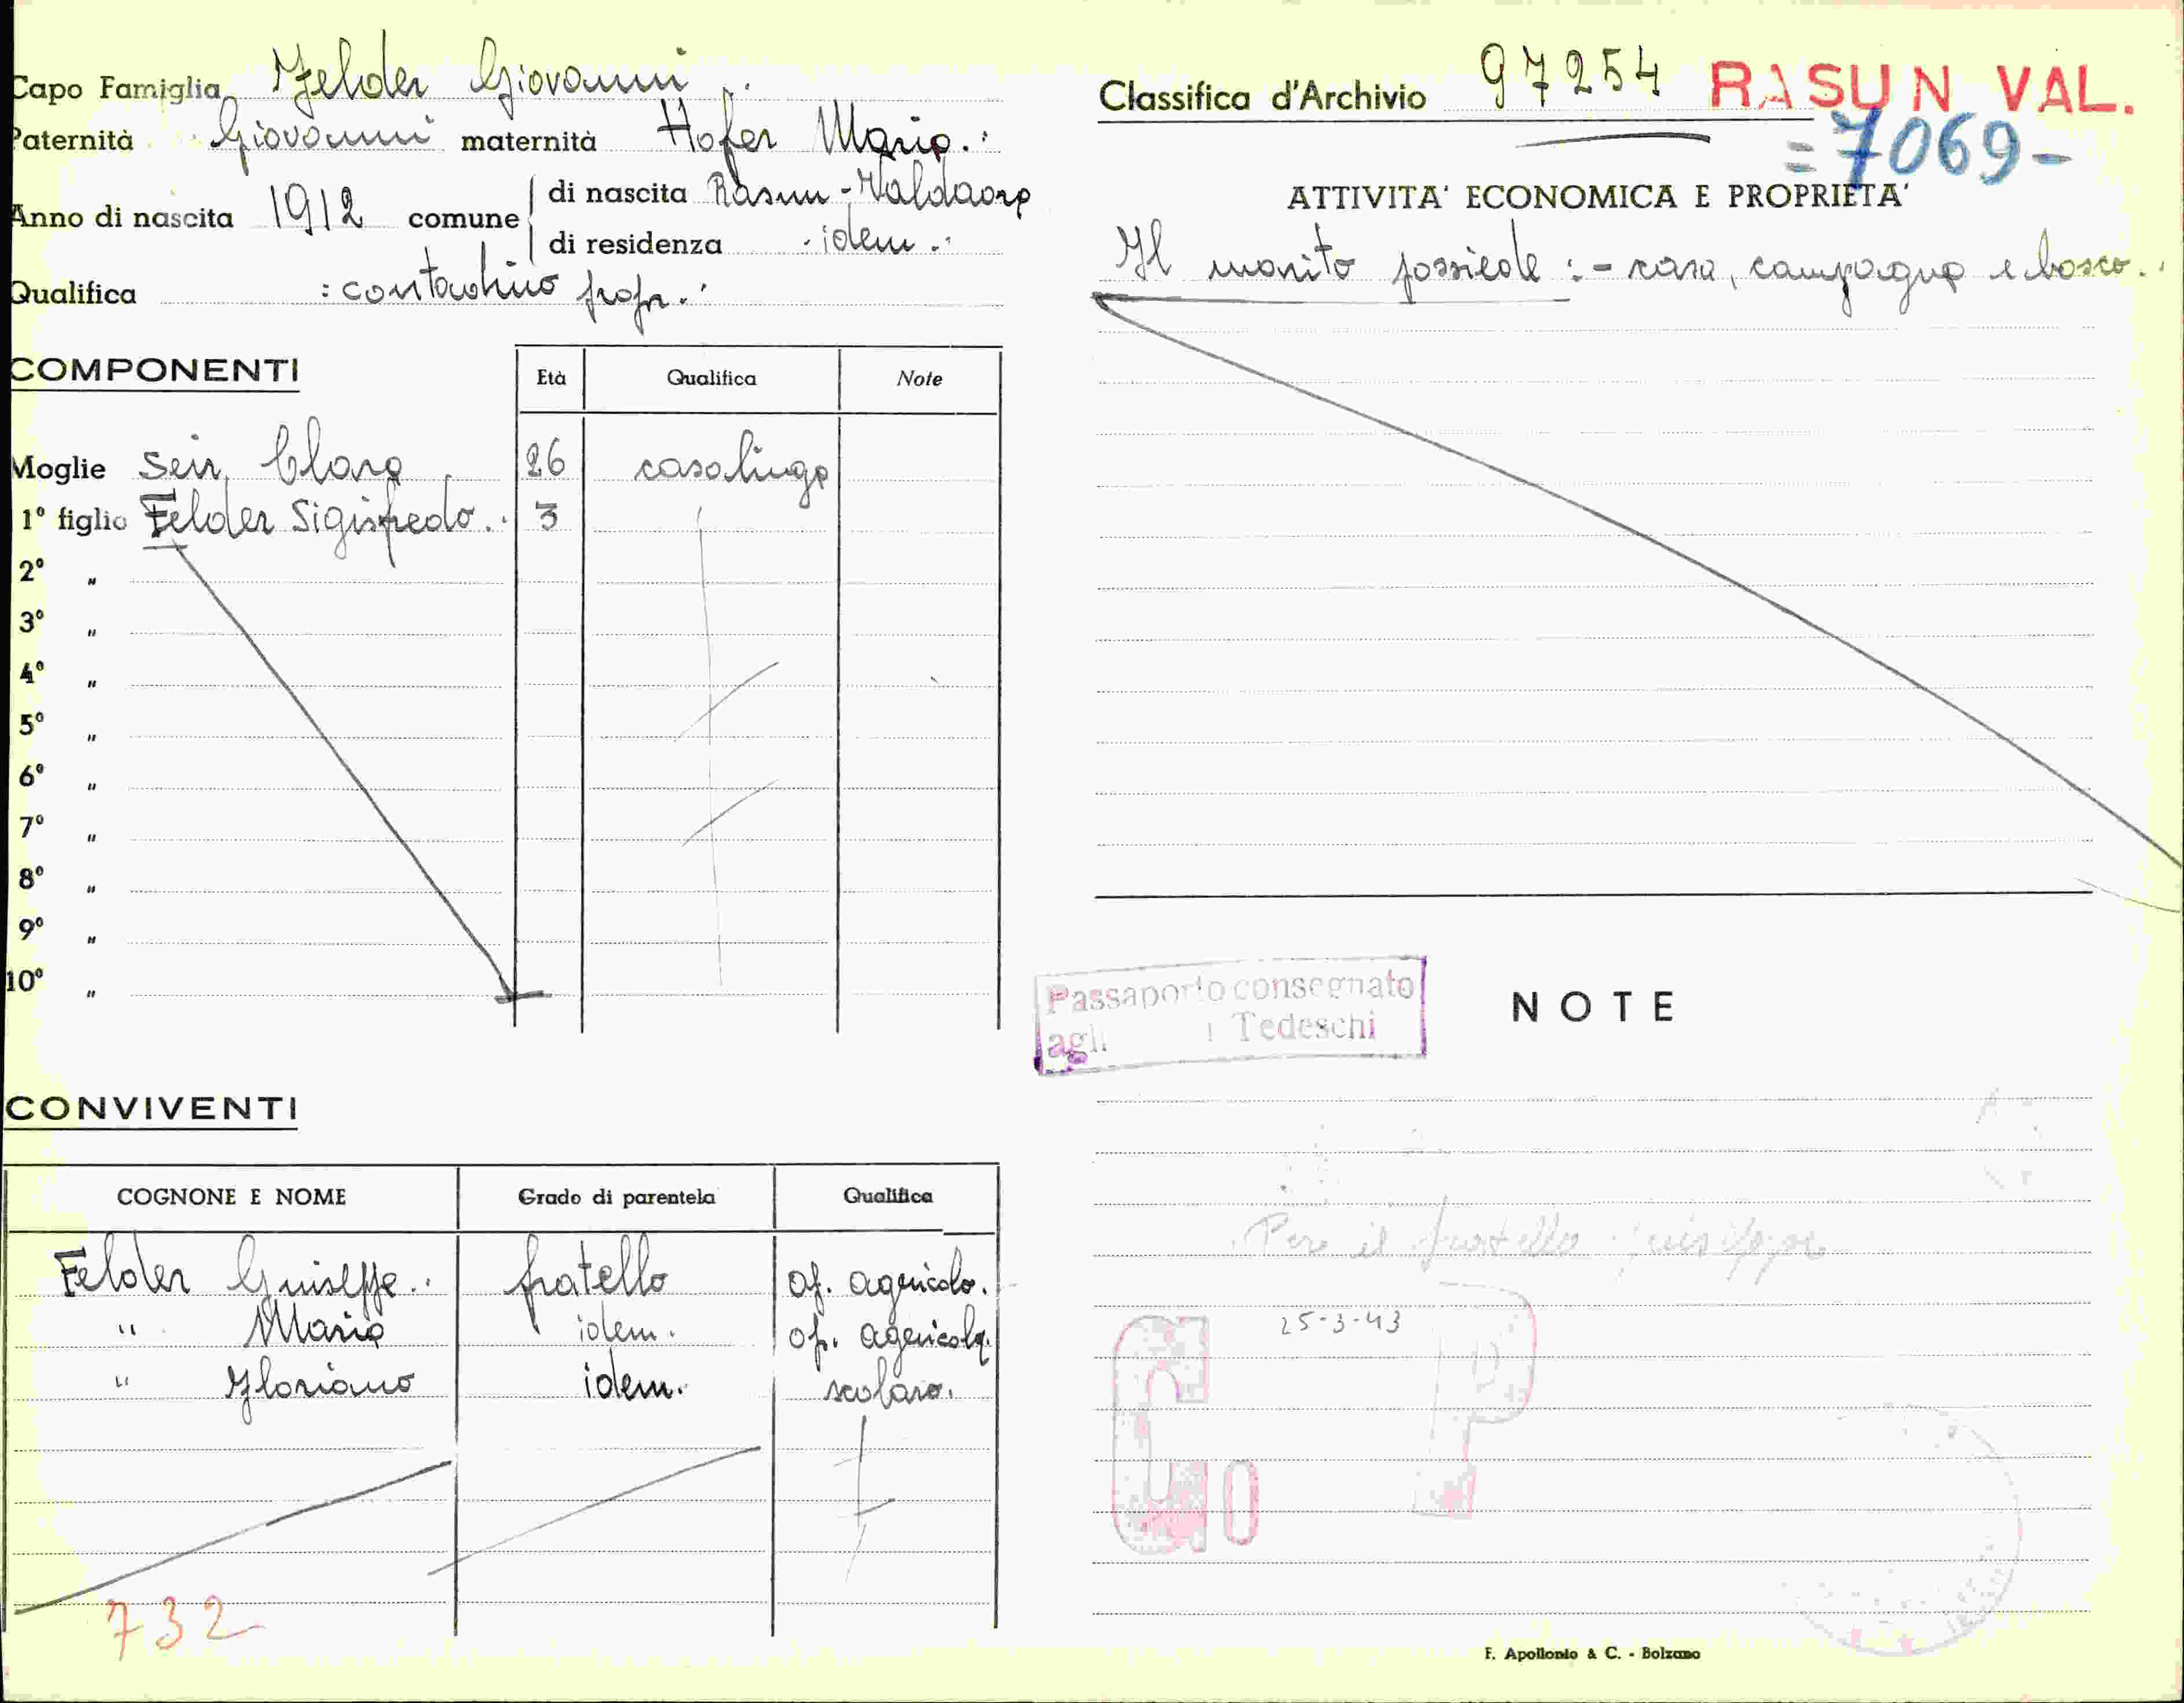 Capo Famiglia Felder Giovanni
Paternità Giovanni maternità Hofer Maria.
Anno di nascita 1912 comune
di nascita Rasun-Valdaora
di residenza idem.
Qualifica : contadino propr.
COMPONENTI
Età Qualifica Note
Moglie Seir Clara 26 casalinga
1° figlio Felder Sigisfredo. 3
2° "
3° "
4° "
5° "
6° "
7° "
8° "
9° "
10° "
CONVIVENTI
COGNONE E NOME Grado di parentela Qualifica
Felder Guiseppe. fratello op. agricolo.
" Maria idem. op. agricola.
" Floriano idem. scolaro.
732
Classifica d'Archivio 97254 RASUN VAL.
=7069-
ATTIVITA' ECONOMICA E PROPRIETA'
Il marito possiede :- casa, campagna e bosco.
Passaporto consegnato
agli Tedeschi
NOTE
Per il fratello Giuseppe
25-3-43
G P
0
F. Apollonio & C. - Bolzano